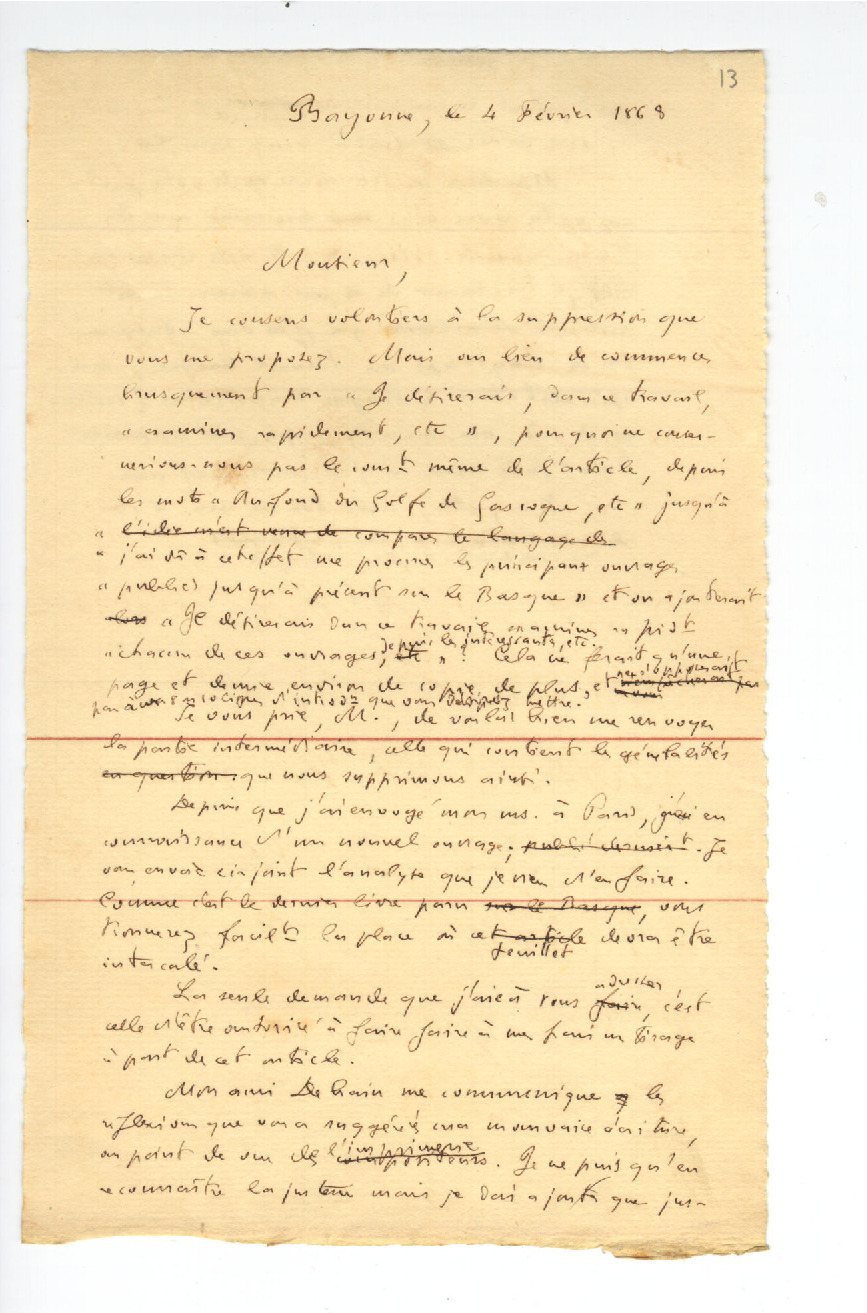 13
Bayonne, le 4 Février 1868
Monsieur,
Je consens volontiers à la suppression que
vous me proposez. Mais au lieu de commencer
brusquement par « Je désirerais, dans ce travail,
« examiner rapidement, etc », pourquoi ne commen-
cerions-nous pas le comt même de l'article, depuis
les mots « Au fond du Golfe de Gascogne, etc » jusqu'à
« l'idée m'est venue de comparer le langage de
« j'ai dû à cet effet me procurer les principaux ouvrages
« publiés jusqu'à présent sur le Basque » et on ajouterait
alors « Je désirerais dans ce travail examiner rapidt
depuis les intéressants, etc.
« chacun de ces ouvrages, etc » ? Cela ne ferait qu'une
page et demie environ de copie de plus, et ne s'opposerait
n'empêcherait pas
pas à d'introdon que vous mettre.
Je vous prie, M., de vouloir bien me renvoyer
la partie intermédiaire, celle qui contient les généralités
en question que nous supprimons ainsi.
Depuis que j'ai envoyé mon ms. à Paris, j'ai eu
connaissance d'un nouvel ouvrage, publié dernièrt. Je
vous envoie ci-joint l'analyse que je viens d'en faire.
Comme c'est le dernier livre paru sur le Basque, vous
trouverez facilt la place où cet article devra être
feuillet
intercalé.
adresser
La seule demande que j'aie à vous faire, c'est
celle d'être autorisé à faire faire à mes frais un tirage
à part de cet article.
Mon ami Debain me communique les
réflexions que vous a suggérées ma mauvaise écriture,
au point de vue de l'imprimerie
compositeurs. Je ne puis qu'en
reconnaître la justesse mais je dois ajouter que jus-